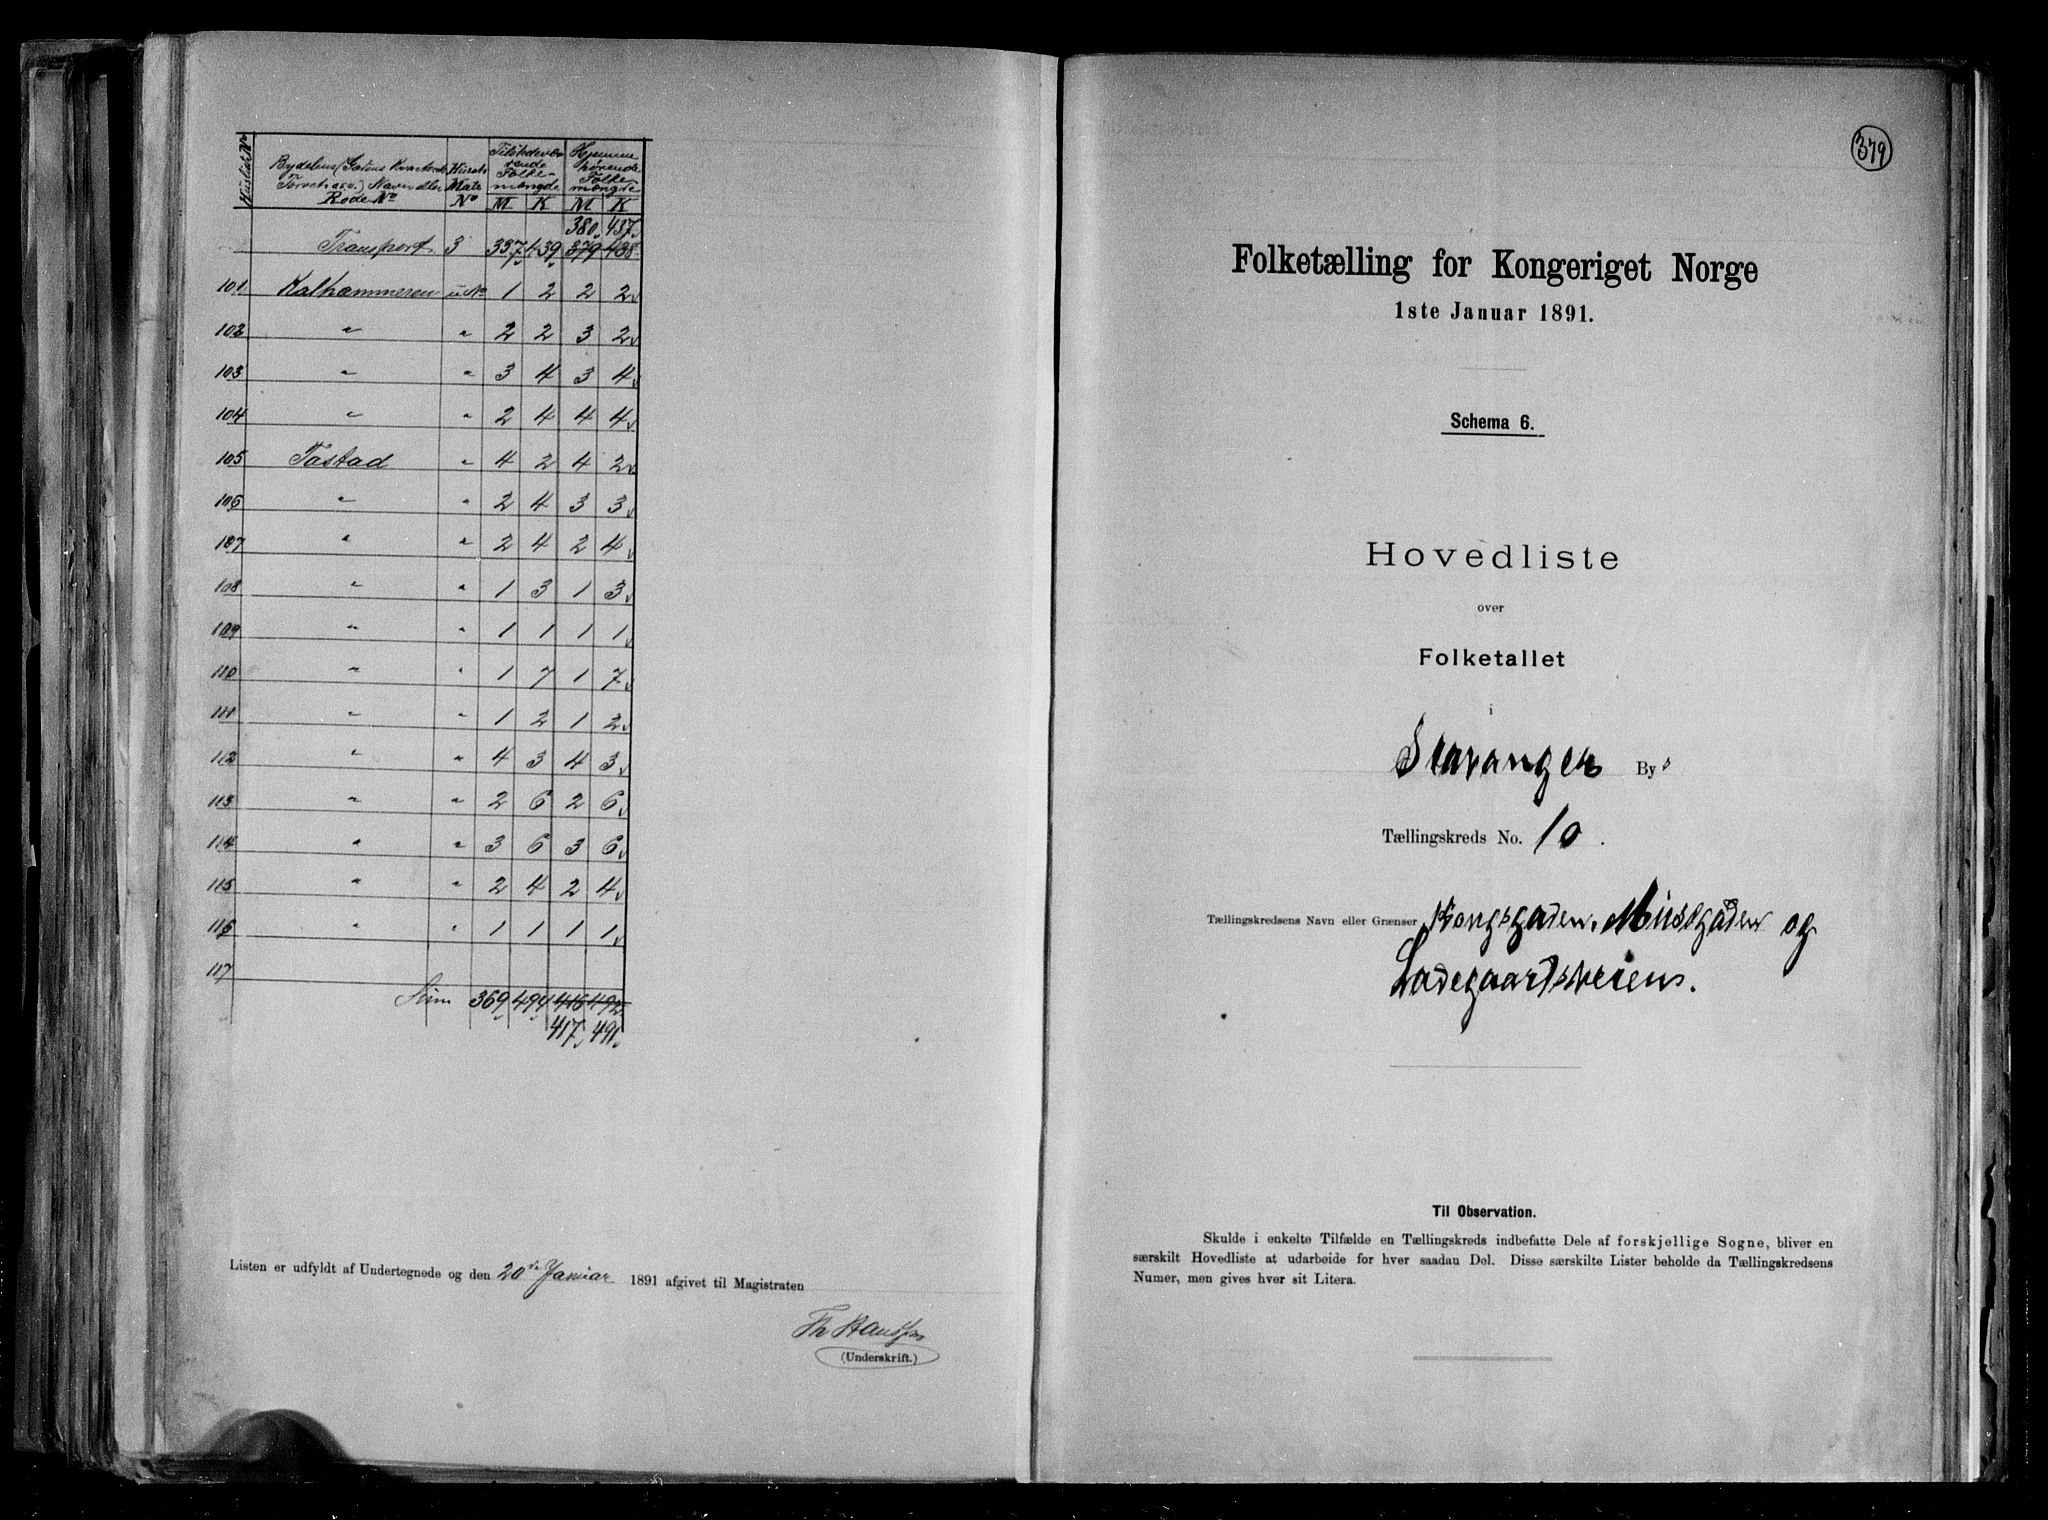 Huslist No
Bydelens (Gadens Kvarterets Torvets o.s.v.) Navn eller Rode No
Matr. No
Tilstedeværende Folkemængde
Hjemmehørende Folkemængde
M K M K
380 437
Transport 3 337 439 379 438
101 Kalhammeren u No 1 2 2 2
102 " " 2 2 3 2
103 " " 3 4 3 4
104 " " 2 4 4 4
105 Tastad " 4 2 4 2
106 " " 2 4 3 3
107 " " 2 4 2 4
108 " " 1 3 1 3
109 " " 1 1 1 1
110 " " 1 7 1 7
111 " " 1 2 1 2
112 " " 4 3 4 3
113 " " 2 6 2 6
114 " " 3 6 3 6
115 " " 2 4 2 4
116 " " 1 1 1 1
117
Sum 369 494 416 492
417 491
Listen er udfyldt af Undertegnede og den 20de Januar 1891 afgivet til Magistraten
Th Hanssen
(Underskrift.)
379
Folketælling for Kongeriget Norge
1ste Januar 1891.
Schema 6.
Hovedliste
over
Folketallet
i
Stavanger By
Tællingskreds No. 10.
Tællingskredsens Navn eller Grænser Kongsgaden, Musegaden og
Ladegaardsveiens.
Til Observation.
Skulde i enkelte Tilfælde en Tællingskreds indbefatte Dele af forskjellige Sogne, bliver en
særskilt Hovedliste at udarbeide for hver saadan Del. Disse særskilte Lister beholde da Tællingskredsens
Numer, men gives hver sit Litera.